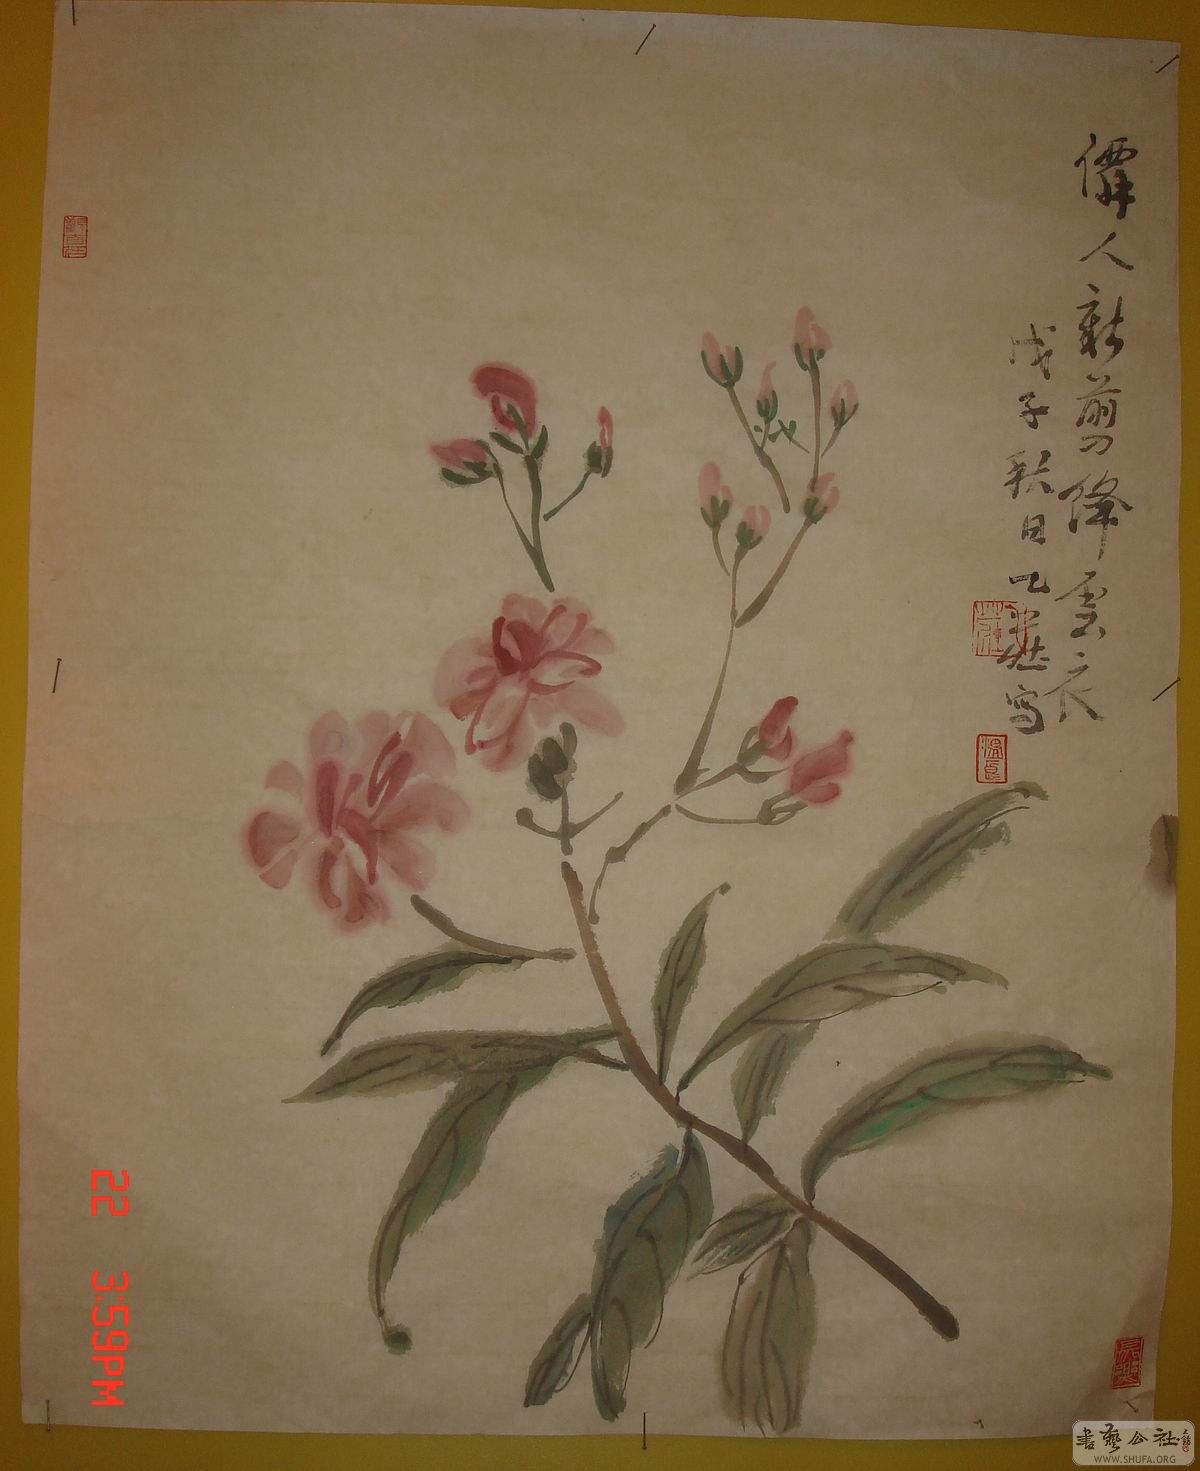 僊人新剪絳雲衣
戊子秋日 然写
温良
長樂
22 3:59PM
書藝公社
WWW.SHUFA.ORG